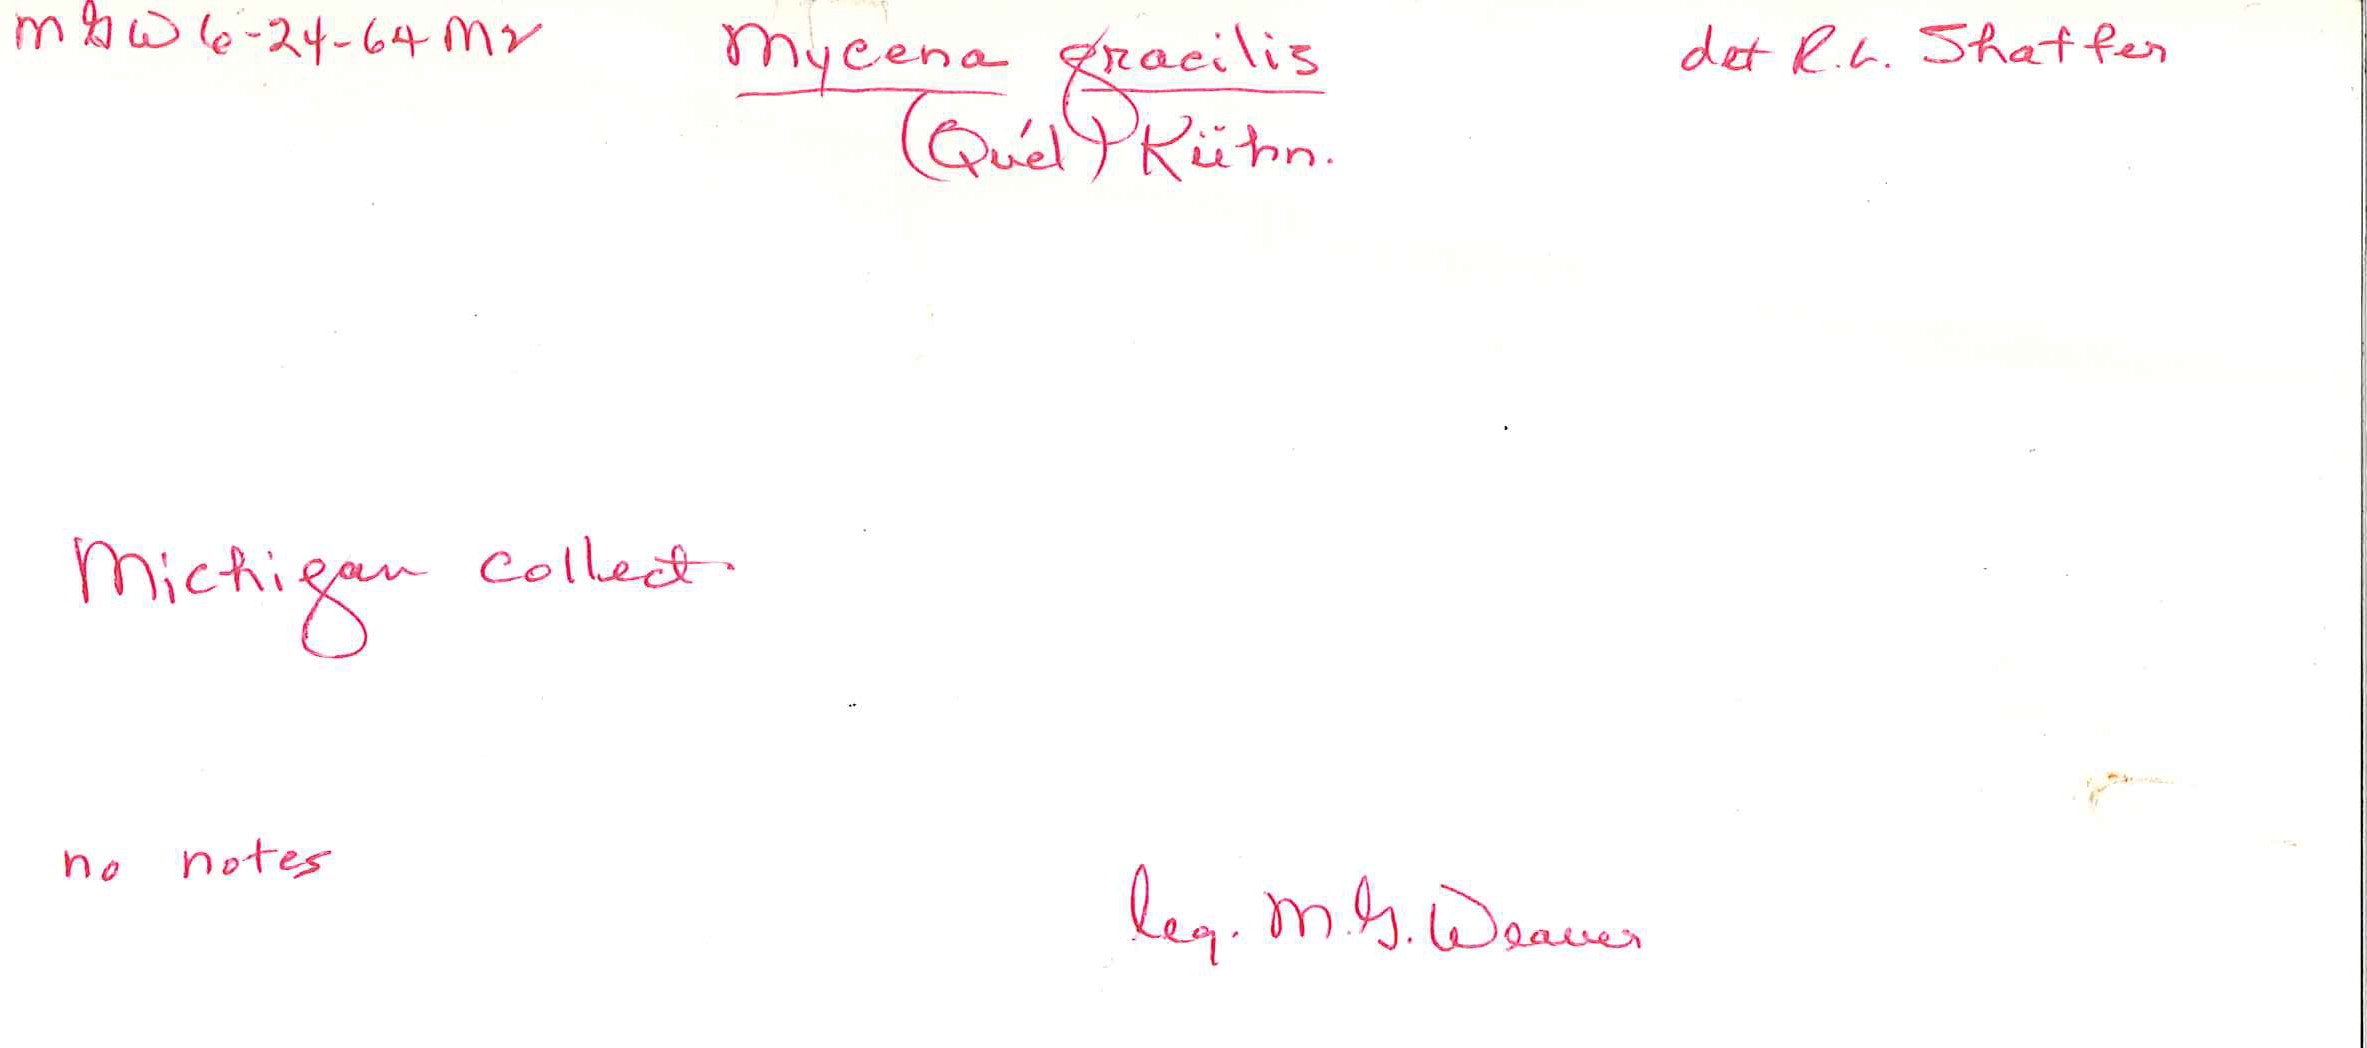 MGW 6-24-64 M2 Mycena gracilis det R.L. Shaffer
(Quél) Kühn.
Michigan collect.
no notes
leg. M.G. Weaver